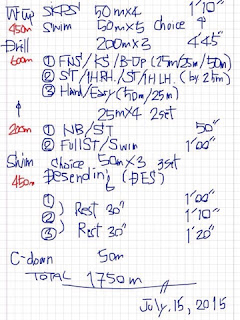 W-up SKPS 50m×4 1'10"
450m Swim 50m×5 choice
Drill 200m×3 4'45"
600m ① FNS/KS/B-UP (75m/75m/50m)
② ST/1H.RH./ST/1H.LH. (by 25m)
③ Hard/Easy (50m/25m)
25m×4 2set
200m ① NB/ST 50"
② Full ST/Swim 1'00"
Swim choice 50m×3 3set
450m Desending (DES)
① 1'00"
② ) Rest 30" 1'10"
③ ) Rest 30" 1'20"
C-down 50m
TOTAL 1750m
July. 15, 2015